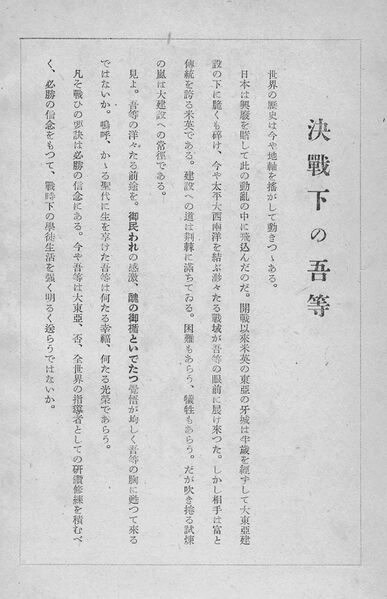 決戰下の吾等
世界の歷史は今や地軸を搖がして動きつゝある。
日本は興廢を賭して此の動亂の中に飛込んだのだ。開戰以來米英の東亞の牙城は半歲を經ずして大東亞建
設の下に脆くも碎け、今や太平大西兩洋を結ぶ渺々たる戰域が吾等の眼前に展け來つた。しかし相手は富と
傳統を誇る米英である。建設への道は荆棘に滿ちてゐる。困難もあらう、犧牲もあらう。だが吹き捲る試煉
の嵐は大建設への常徑である。
見よ。吾等の洋々たる前途を。御民われの感激、醜の御楯といでたつ覺悟が均しく吾等の胸に甦つて來る
ではないか。嗚呼、かゝる聖代に生を享けた吾等は何たる幸福、何たる光榮であらう。
凡そ戰ひの要訣は必勝の信念にある。今や吾等は大東亞、否、全世界の指導者としての硏鑽修練を積むべ
く、必勝の信念をもつて、戰時下の學徒生活を强く明るく送らうではないか。